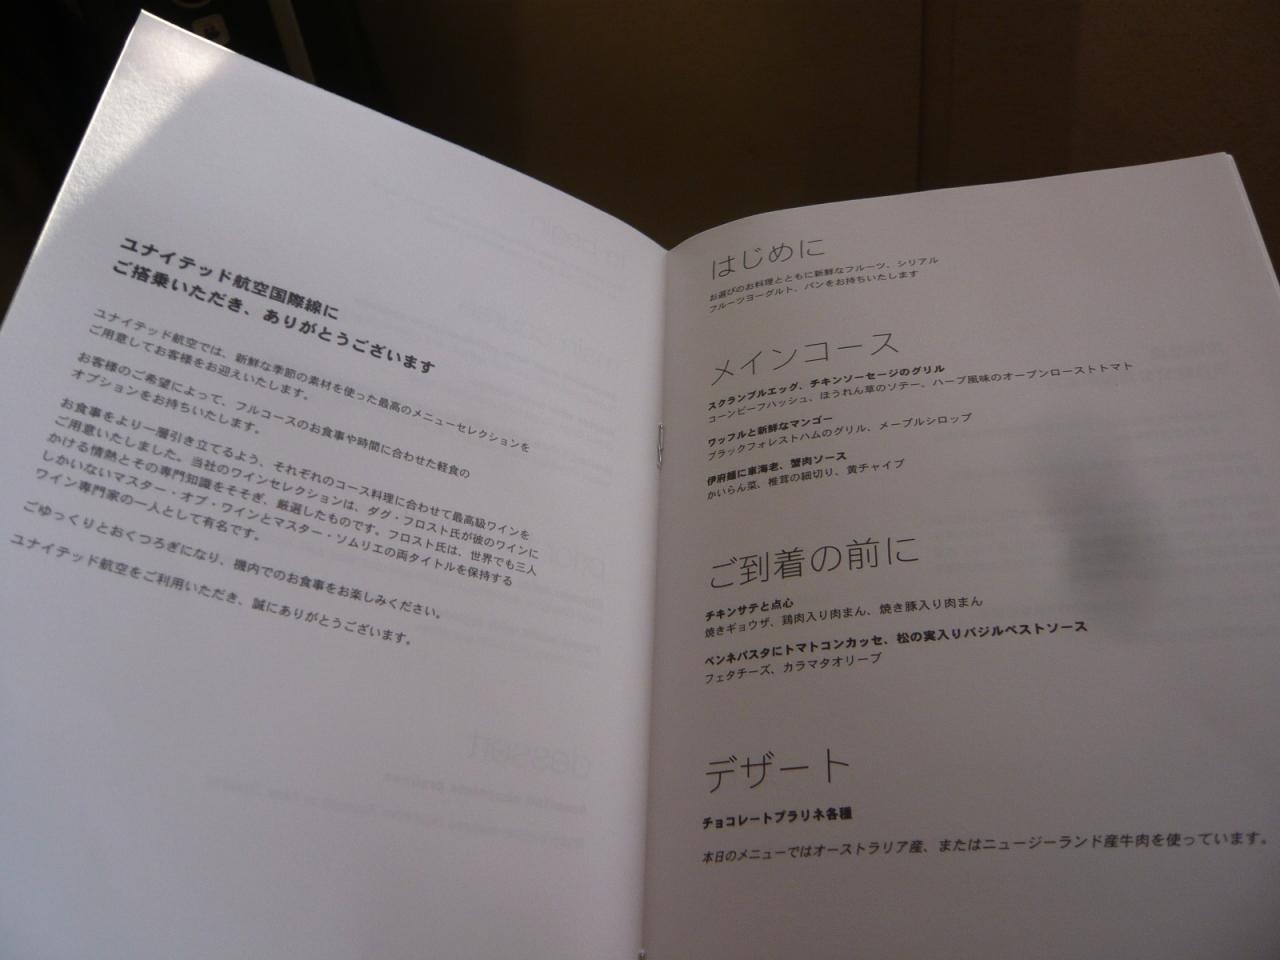 ユナイテッド航空国際線に
ご搭乗いただき、ありがとうございます
ユナイテッド航空では、新鮮な季節の素材を使った最高のメニューセレクションを
ご用意してお客様をお迎えいたします。
お客様のご希望によって、フルコースのお食事や時間に合わせた軽食の
オプションをお持ちいたします。
お食事をより一層引き立てるよう、それぞれのコース料理に合わせて最高級ワインを
ご用意いたしました。当社のワインセレクションは、ダグ・フロスト氏が彼のワインに
かける情熱とその専門知識をそそぎ、厳選したものです。フロスト氏は、世界でも三人
しかいないマスター・オブ・ワインとマスター・ソムリエの両タイトルを保持する
ワイン専門家の一人として有名です。
ごゆっくりとおくつろぎになり、機内でのお食事をお楽しみください。
ユナイテッド航空をご利用いただき、誠にありがとうございます。
はじめに
お選びのお料理とともに新鮮なフルーツ、シリアル
フルーツヨーグルト、パンをお持ちいたします
メインコース
スクランブルエッグ、チキンソーセージのグリル
コーンビーフハッシュ、ほうれん草のソテー、ハーブ風味のオーブンローストトマト
ワッフルと新鮮なマンゴー
ブラックフォレストハムのグリル、メープルシロップ
伊府麺に車海老、蟹肉ソース
かいらん菜、椎茸の細切り、黄チャイブ
ご到着の前に
チキンサテと点心
焼きギョウザ、鶏肉入り肉まん、焼き豚入り肉まん
ペンネパスタにトマトコンカッセ、松の実入りバジルペストソース
フェタチーズ、カラマタオリーブ
デザート
チョコレートプラリネ各種
本日のメニューではオーストラリア産、またはニュージーランド産牛肉を使っています。